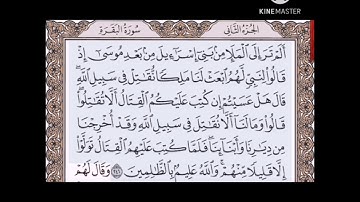 KINEMASTER
سُورَةُ البَقَرَةِ
الجُزءُ الثَّانِي
أَلَمۡ تَرَ إِلَى ٱلۡمَلَإِ مِنۢ بَنِيٓ إِسۡرَٰٓءِيلَ مِنۢ بَعۡدِ مُوسَىٰٓ إِذۡ
قَالُواْ لِنَبِيّٖ لَّهُمُ ٱبۡعَثۡ لَنَا مَلِكٗا نُّقَٰتِلۡ فِي سَبِيلِ ٱللَّهِۖ
قَالَ هَلۡ عَسَيۡتُمۡ إِن كُتِبَ عَلَيۡكُمُ ٱلۡقِتَالُ أَلَّا تُقَٰتِلُواْۖ
قَالُواْ وَمَا لَنَآ أَلَّا نُقَٰتِلَ فِي سَبِيلِ ٱللَّهِ وَقَدۡ أُخۡرِجۡنَا
مِن دِيَٰرِنَا وَأَبۡنَآئِنَاۖ فَلَمَّا كُتِبَ عَلَيۡهِمُ ٱلۡقِتَالُ تَوَلَّوۡاْ
إِلَّا قَلِيلٗا مِّنۡهُمۡۚ وَٱللَّهُ عَلِيمُۢ بِٱلظَّٰلِمِينَ ٢٤٦ وَقَالَ لَهُمۡ